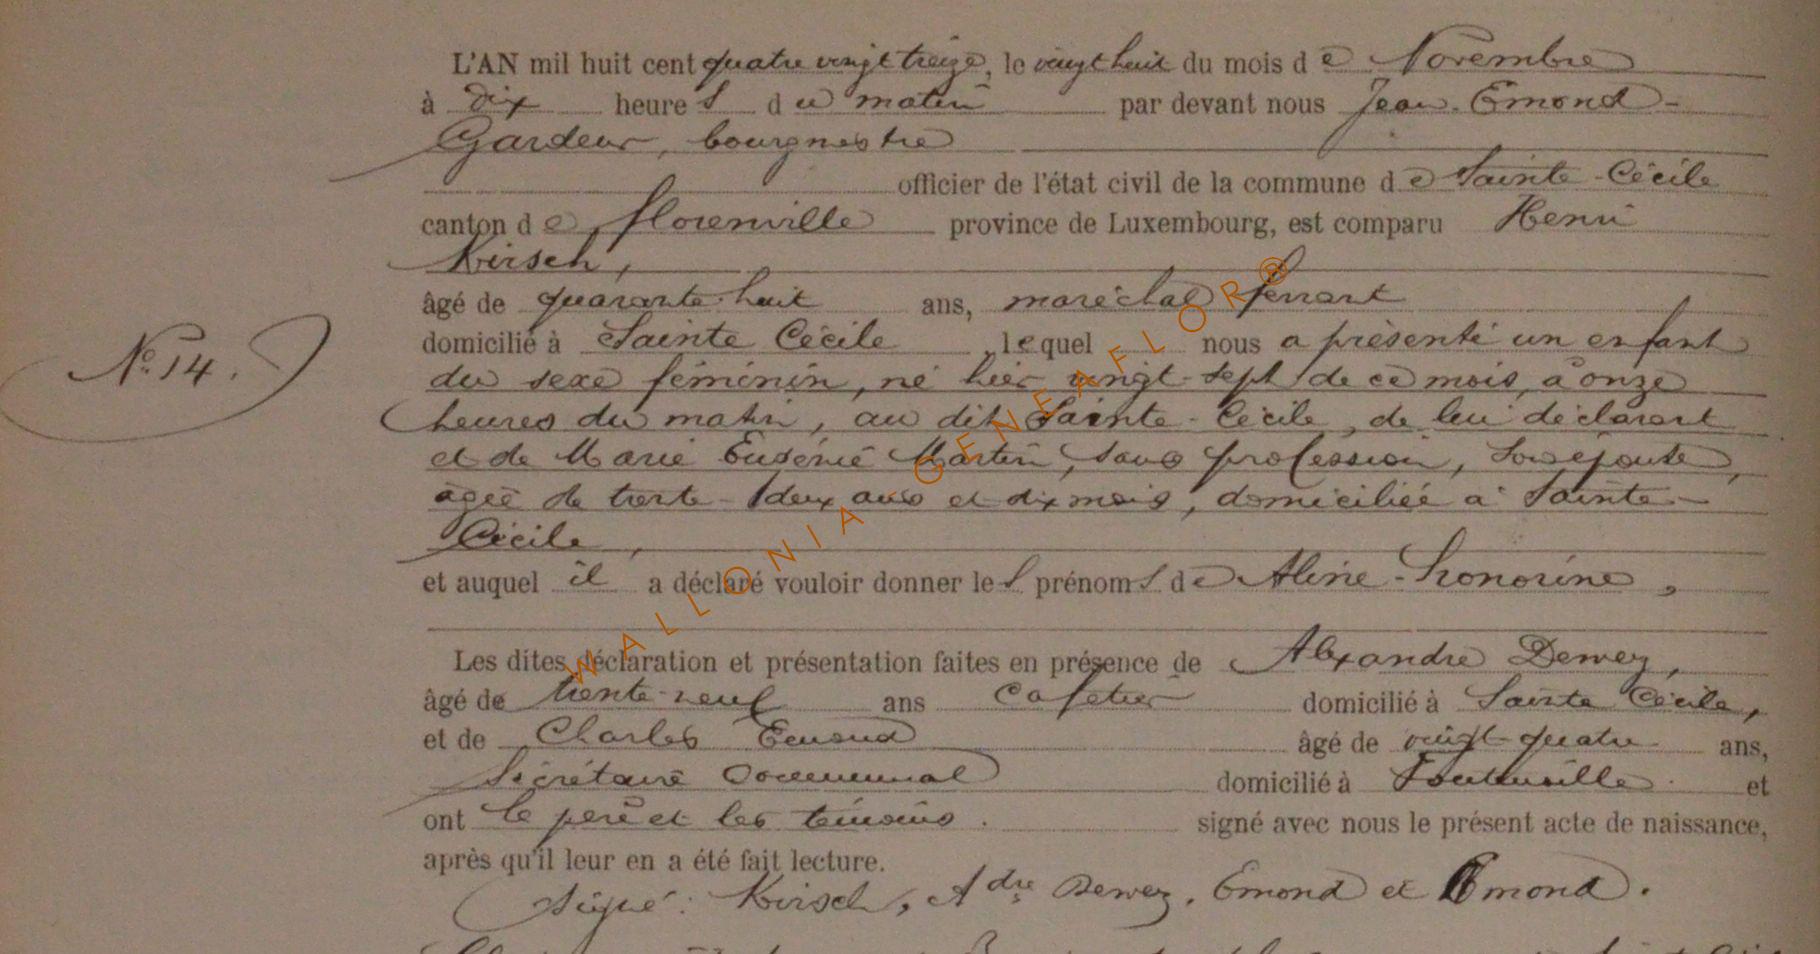 L'AN mil huit cent quatre vingt treize, le vingt huit du mois de Novembre
à dix heures du matin par devant nous Jean Emond-
Gardeur, bourgmestre
officier de l'état civil de la commune de Sainte-Cécile
canton de Florenville province de Luxembourg, est comparu Henri
Kirsch,
âgé de quarante-huit ans, maréchal ferrant
domicilié à Sainte Cécile lequel nous a présenté un enfant
du sexe féminin, né hier vingt-sept de ce mois, à onze
heures du matin, au dit Sainte-Cécile, de lui déclarant
et de Marie Eugénie Martin, sans profession, son épouse,
âgée de trente-deux ans et dix mois, domiciliée à Sainte-
Cécile,
et auquel il a déclaré vouloir donner les prénoms de Aline-Honorine,
Les dites déclaration et présentation faites en présence de Alexandre Dewez,
âgé de trente-neuf ans cafetier domicilié à Sainte Cécile,
et de Charles Emond âgé de vingt-quatre ans,
Secrétaire Communal domicilié à et
ont le père et les témoins. signé avec nous le présent acte de naissance,
après qu'il leur en a été fait lecture.
Signé: Kirsch, Adre Dewez, Emond et Emond.
N° 14.
WALLONIA GENEAFLOR®